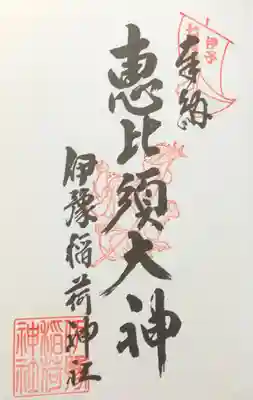 奉納
恵比須大神
伊豫稲荷神社
伊豫
稲荷
神社